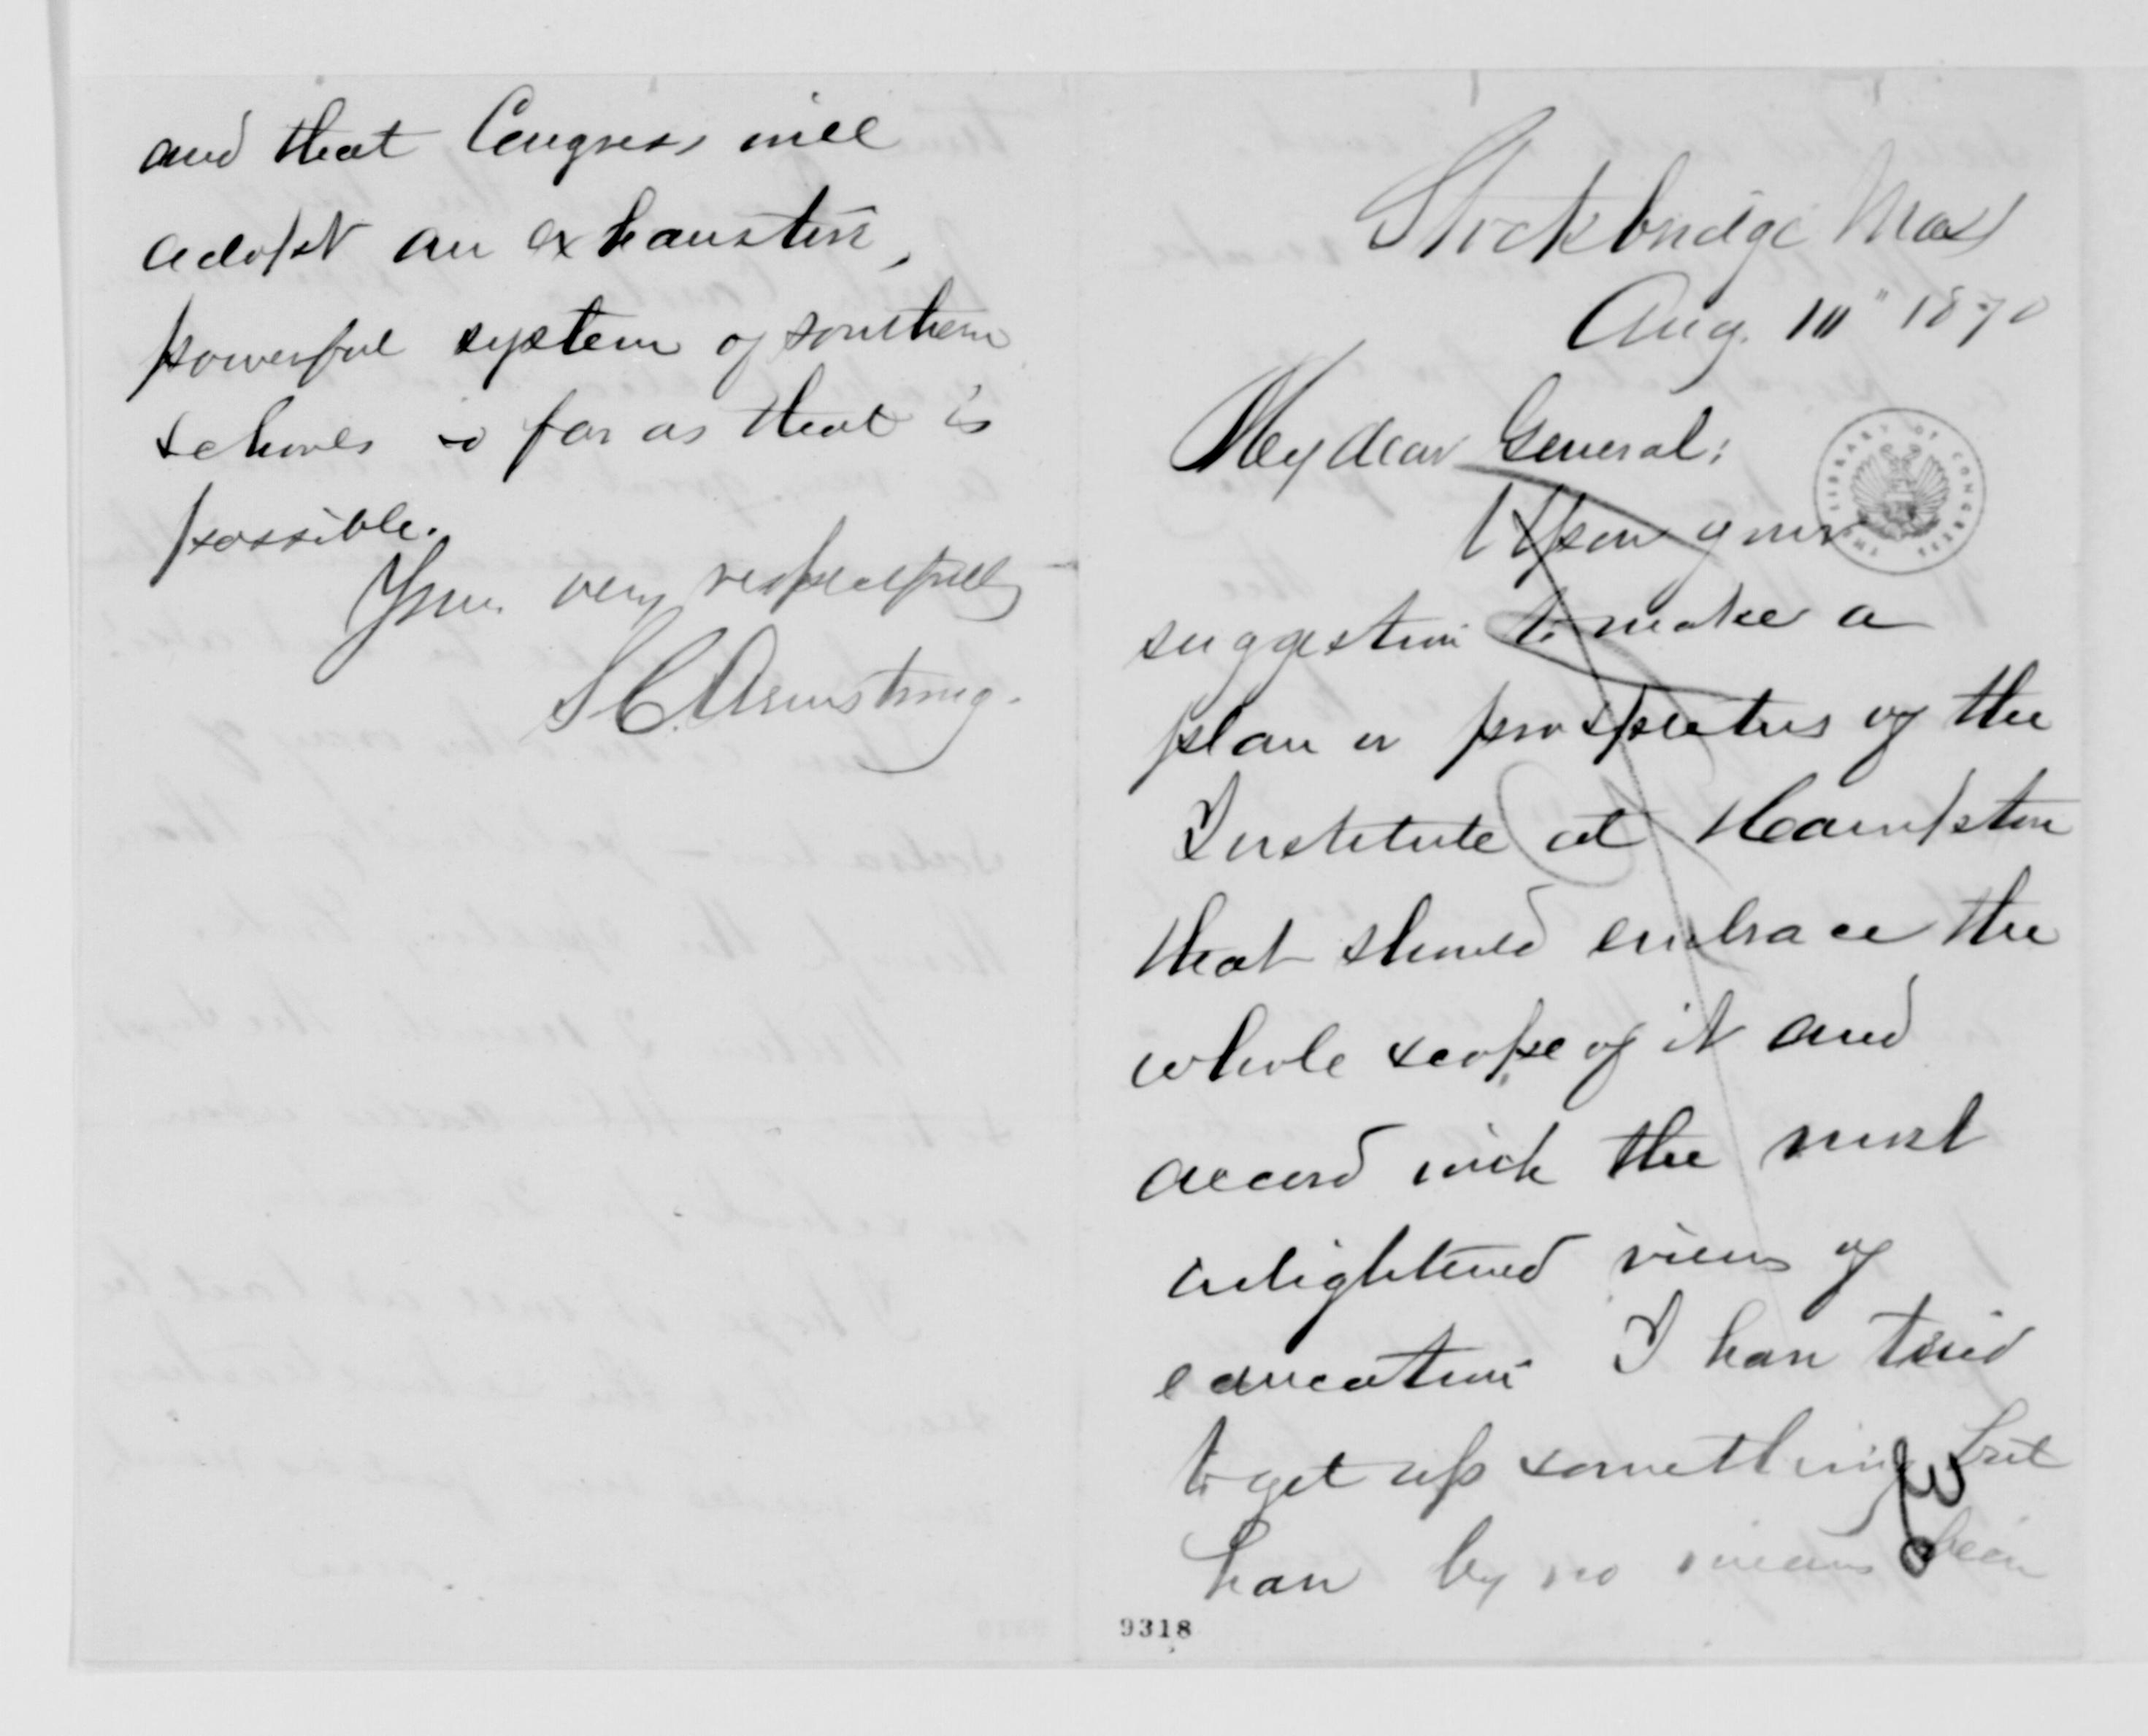 and that Congress will
adopt an exhaustive,
powerful system of southern
schools so far as that is
possible.
Yours very respectfully
S. C. Armstrong.
Stockbridge Mass
Aug. 10" 1870
My dear General:
Upon your
suggestion to make a
plan or prospectus of the
Institute at Hampton
that should embrace the
whole scope of it and
accord with the most
enlightened views of
education I have tried
to get up something but
have by no means been
THE LIBRARY OF CONGRESS
9318